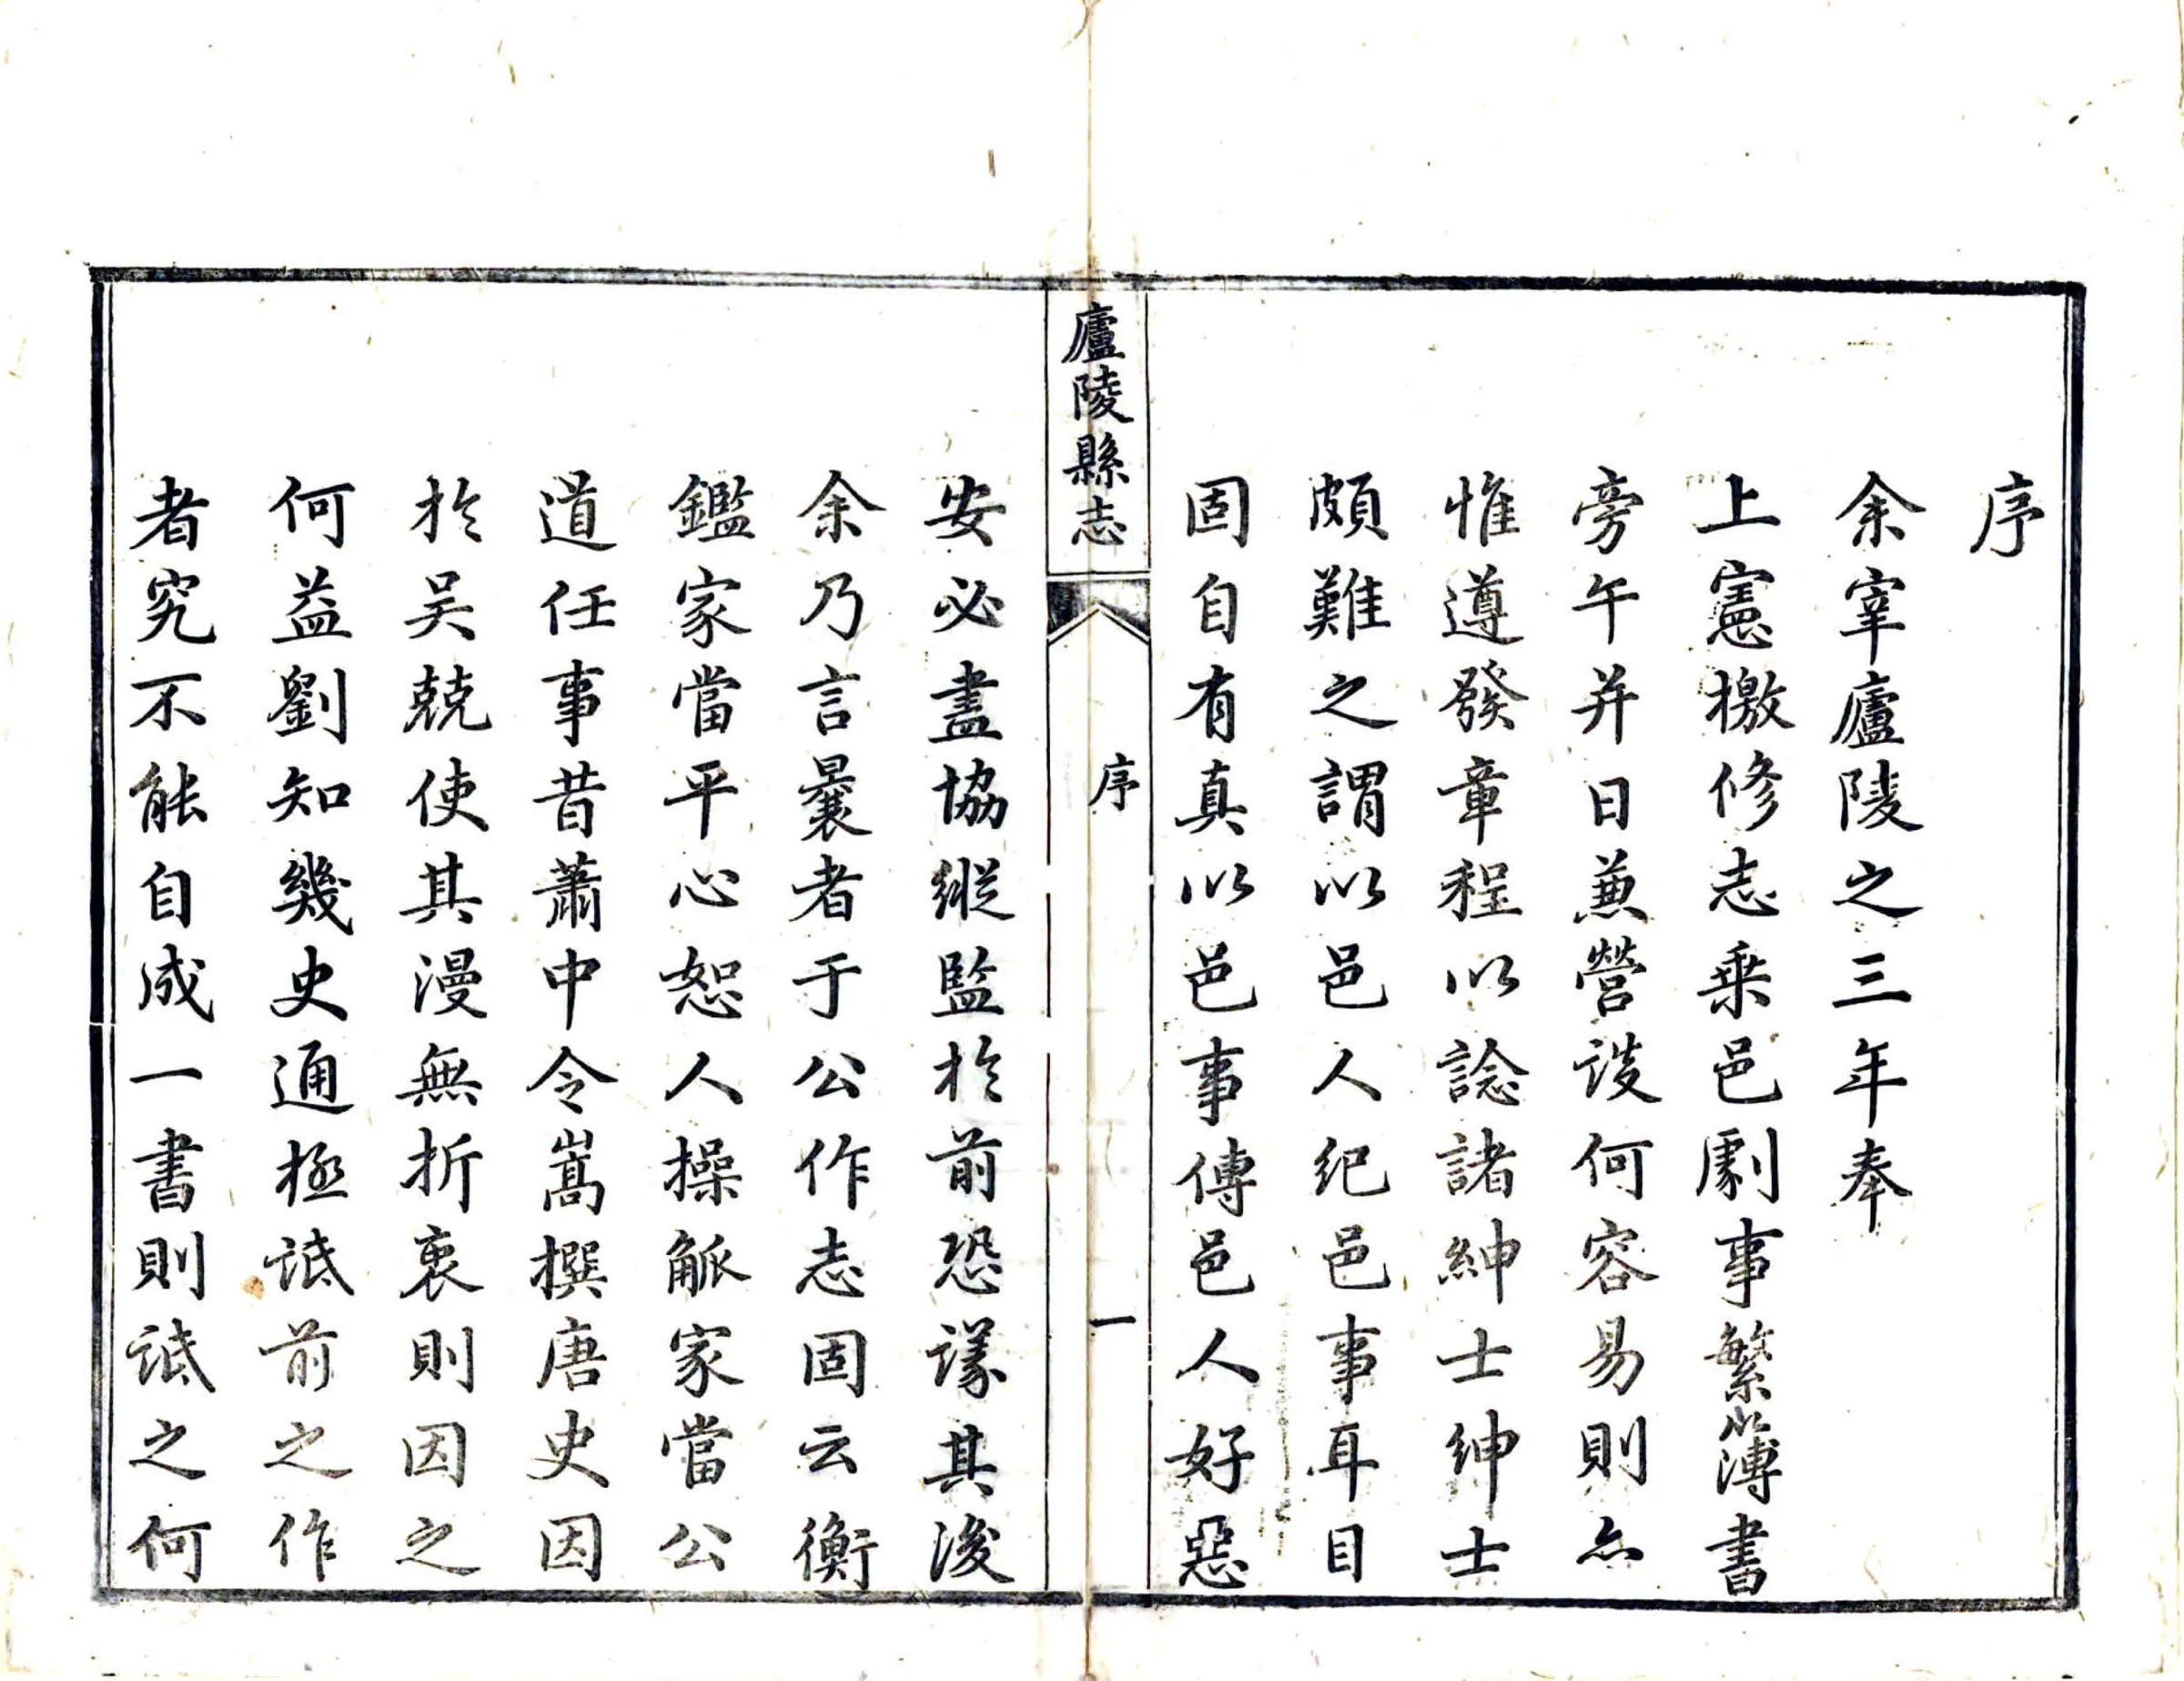 序
余宰廬陵之三年奉
上憲檄修志乘邑劇事繁簿書
旁午并日兼營談何容易則亦
惟遵發章程以諗諸紳士紳士
頗難之謂以邑人紀邑事耳目
固自有真以邑事傳邑人好惡
廬陵縣志
序
一
安必盡協縱監於前恐議其後
余乃言曩者于公作志固云衡
鑑家當平心恕人操觚家當公
道任事昔蕭中令嵩撰唐史因
於吴兢使其漫無折衷則因之
何益劉知幾史通極詆前之作
者究不能自成一書則詆之何